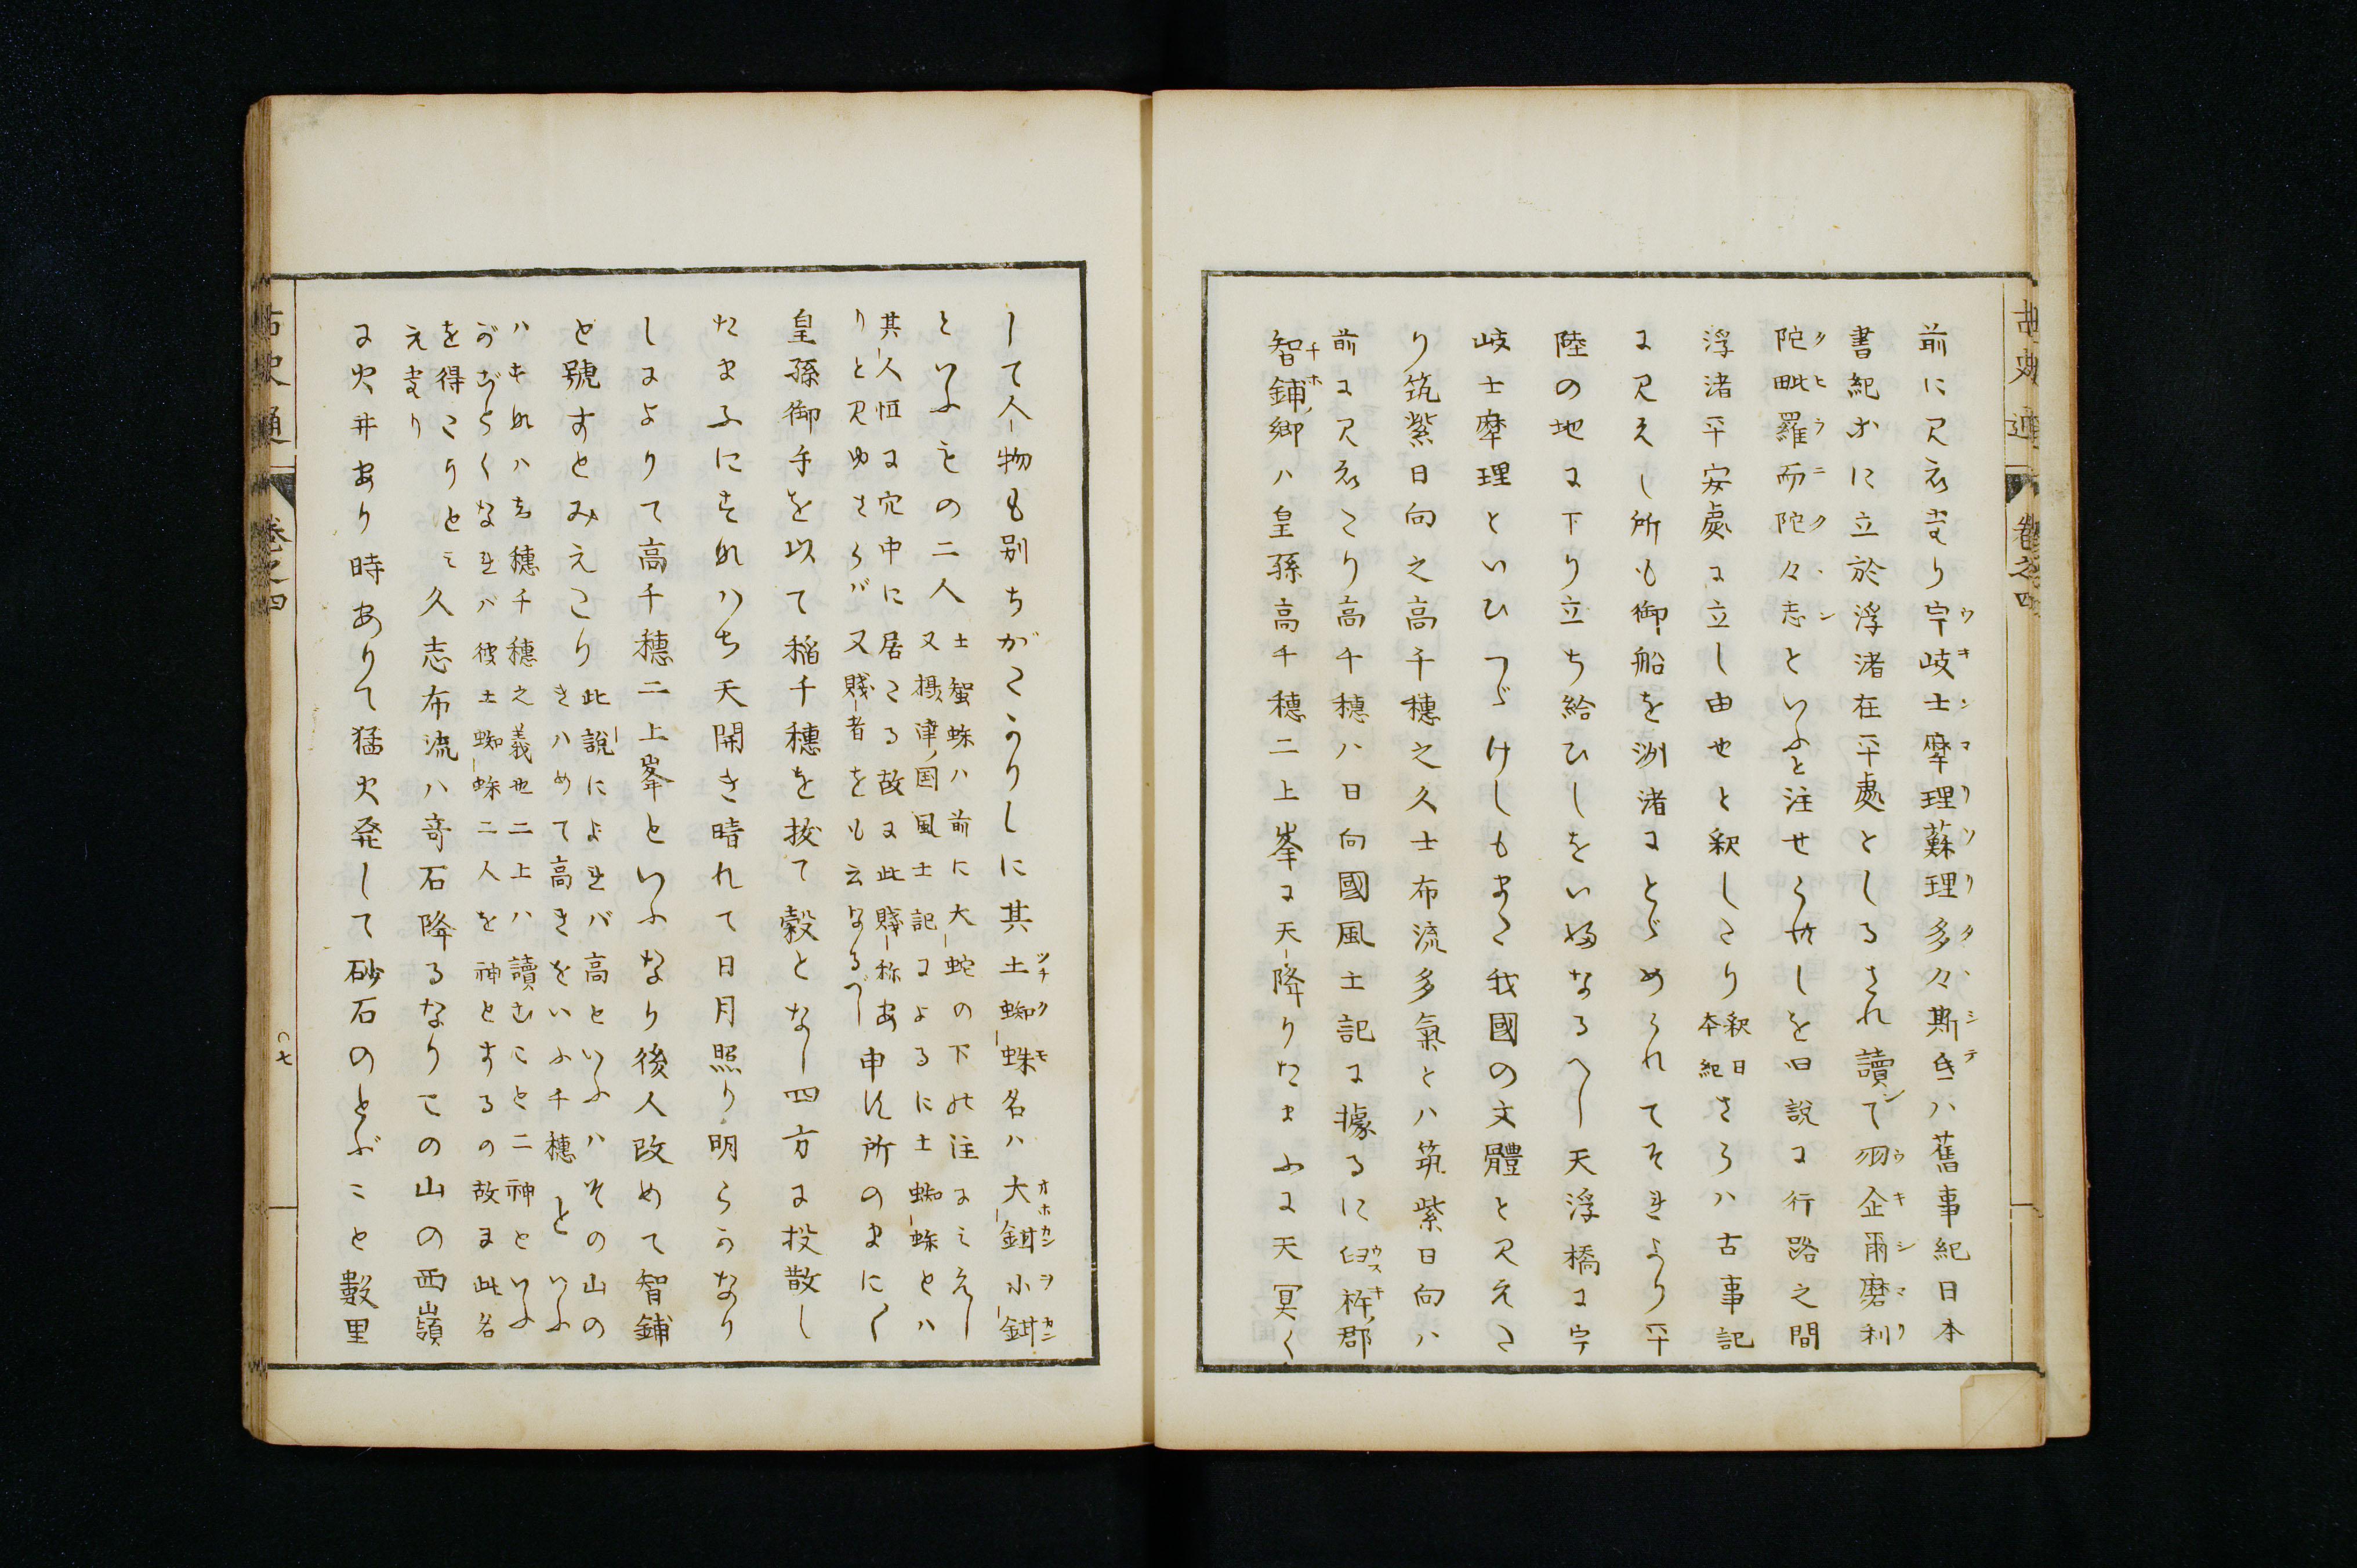 古史通 卷之四
前に見えまり宇岐士摩理蘇理多々斯氐ハ舊事紀日本
書紀等に立於浮渚在平處としるされ讀て羽企爾磨利
陀毗羅而陀々志といふと注せられしを旧説に行路之間
浮渚平安處に立し由也と釈しさり釈日本紀さらハ古事記
に見えし所も御船を洲渚にとゞめられてそれより平
陸の地に下り立ち給ひしをいふなるへし天浮橋に宇
岐士摩理といひつゞけしもまた我國の文體と見えた
り筑紫日向之高千穗之久士布流多氣とハ筑紫日向ハ
前に見えたり高千穗ハ日向國風土記に據るに臼杵郡
智鋪郷ハ皇孫高千穗二上峯に天降りたまふに天冥く
して人物も別ちがたかりしに其土蜘蛛名ハ大鉗小鉗
といふものゝ二人土蜘蛛ハ前に大蛇の下の注にみえし
又摂津国風土記によるに土蜘蛛とハ
其人恒に穴中に居たる故に此賤称あ
りと見ゆさらバ又賤者をも云なるべし申す所のまにく
皇孫御手を以て稲千穗を抜て穀となし四方に投散し
たまふにそれハち天開き晴れて日月照り明らかなり
しによりて高千穗二上峯といふなり後人改めて智鋪
と號すとみえたり此説によれバ高といふハその山の
きハめて高きをいふ千穗といふ
ハすなハち穗千穗之義也二上ハに讀むこと二神といふ
がごとくなれバ彼土蜘蛛二人を神とするの故に此名
を得たりとみえまり
久志布流ハ奇石降るなりこの山の西嶺
に火井あり時ありて猛火発して砂石のとぶこと數里
古史通 卷之四
〇七